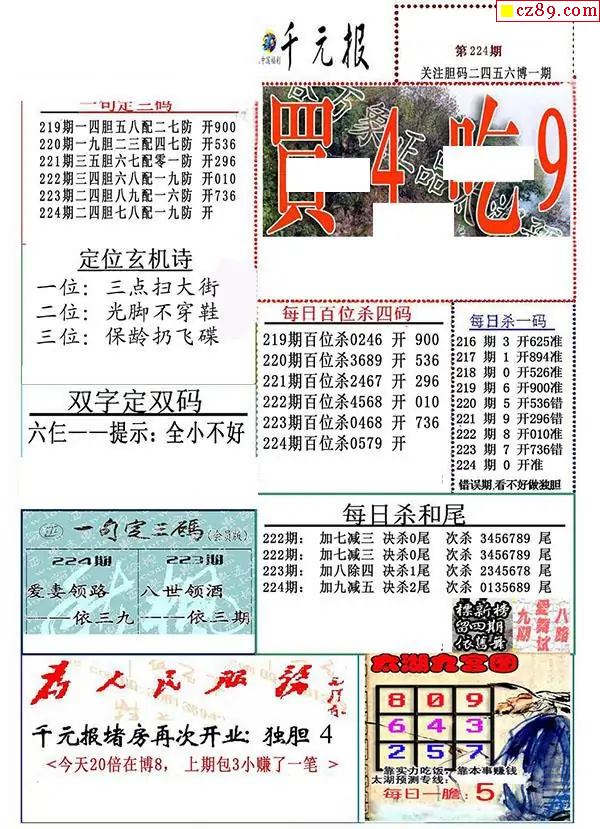 cz89.com
千元报
第224期
关注胆码二四五六博一期
一句定三码
219期一四胆五八配二七防 开900
220期一九胆二三配四七防 开536
221期三五胆六七配零一防 开296
222期三四胆六八配一九防 开010
223期二四胆八九配一六防 开736
224期二四胆七八配一九防 开
買4吃9
定位玄机诗
一位：三点扫大街
二位：光脚不穿鞋
三位：保龄扔飞碟
每日百位杀四码
219期百位杀0246 开 900
220期百位杀3689 开 536
221期百位杀2467 开 296
222期百位杀4568 开 010
223期百位杀0468 开 736
224期百位杀0579 开
每日杀一码
216 期 3 开625准
217 期 1 开894准
218 期 0 开526准
219 期 6 开900准
220 期 5 开536错
221 期 9 开296错
222 期 8 开010准
223 期 7 开736错
224 期 0 开准
错误期,看不好做独胆
双字定双码
六仨——提示：全小不好
每日杀和尾
222期： 加七减三 决杀0尾 次杀 3456789 尾
222期： 加七减三 决杀0尾 次杀 3456789 尾
223期： 加八除四 决杀1尾 次杀 2345678 尾
224期： 加九减五 决杀2尾 次杀 0135689 尾
一句定三碼(会员版)
224期
爱妻领路
——依三九
223期
八世领酒
——依三期
標新榜
留四期
依舊舞
八路
愛舞試
九期
為人民服務
千元报堵房再次开业: 独胆 4
<今天20倍在博8， 上期包3小赚了一笔 >
太湖九宫图
8 0 9
6 4 3
2 5 7
靠实力吃饭 靠本事赚钱
太湖预测专线:
每日一胆 5